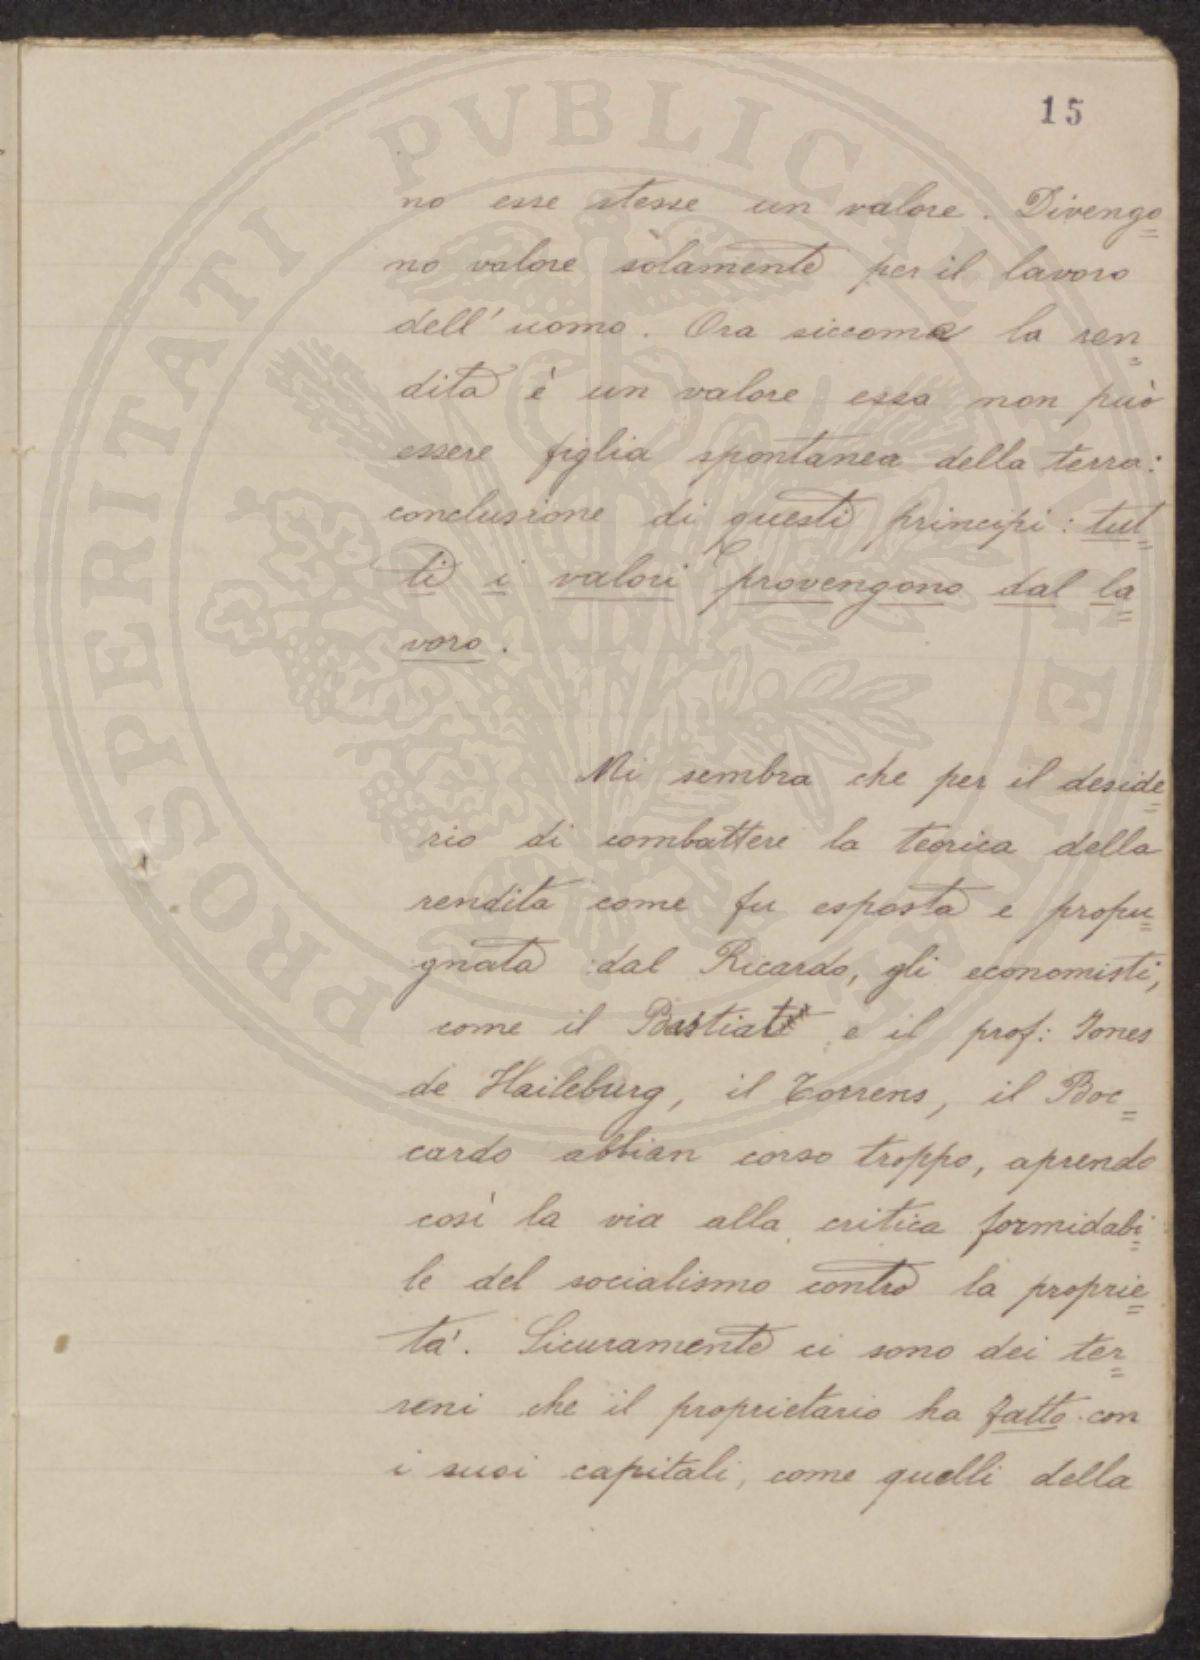 15
no esse stesse un valore. Divengo=
no valore solamente per il lavoro
dell'uomo. Ora siccome la ren=
dita è un valore essa non può
essere figlia spontanea della terra:
conclusione di questi principi: tut=
ti i valori provengono dal la=
voro.
Mi sembra che per il deside=
rio di combattere la teorica della
rendita come fu esposta e propu=
gnata dal Ricardo, gli economisti,
come il Bastiat e il prof: Jones
de Haileburg, il Torrens, il Boc=
cardo abbian corso troppo, aprendo
così la via alla critica formidabi=
le del socialismo contro la proprie=
ta'. Sicuramente ci sono dei ter=
reni che il proprietario ha fatto con
i suoi capitali, come quelli della
PROSPERITATI PVBLICAE